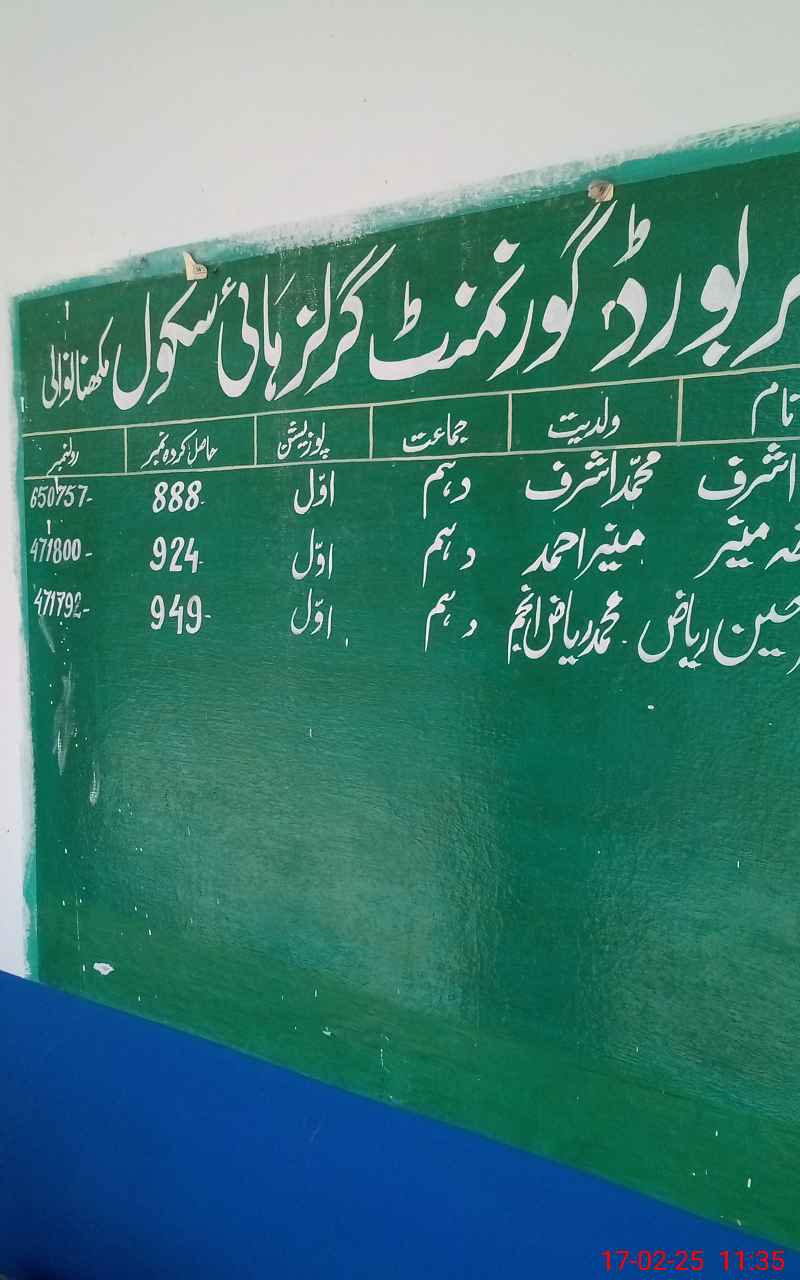 بورڈ گورنمنٹ گرلز ہائی سکول مکھنانوالی
نام ولدیت جماعت پوزیشن حاصل کردہ نمبر رولنمبر
اشرف محمّد اشرف دہم اوّل 888- 650757-
منیر منیر احمد دہم اوّل 924- 471800-
ریاض محمد ریاض انجم دہم اوّل 949- 471792-
17-02-25 11:35